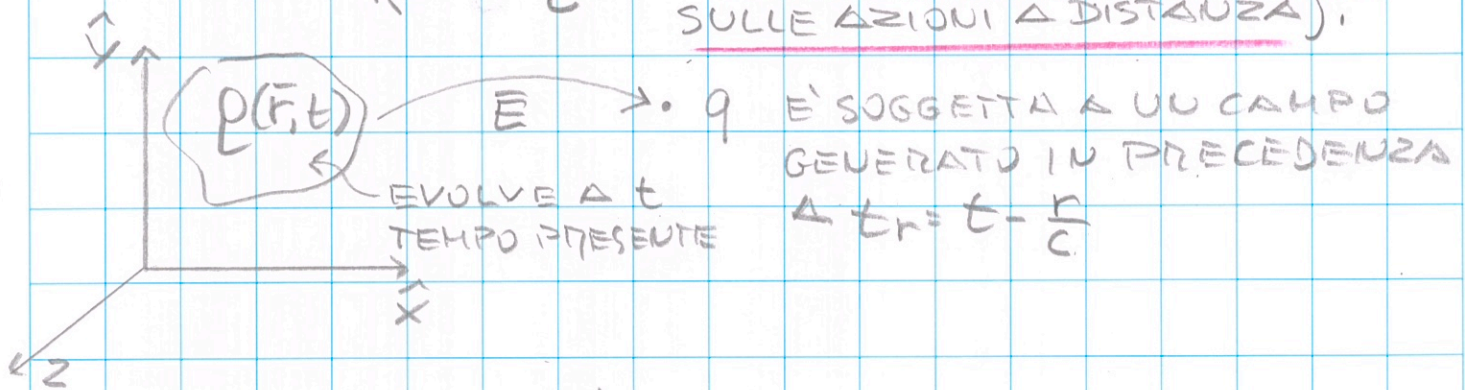 SULLE AZIONI A DISTANZA).
ŷ
ρ(r̄,t)
Ē
q
È SOGGETTA A UN CAMPO
GENERATO IN PRECEDENZA
A tr = t - r/c
EVOLVE A t
TEMPO PRESENTE
x̂
z